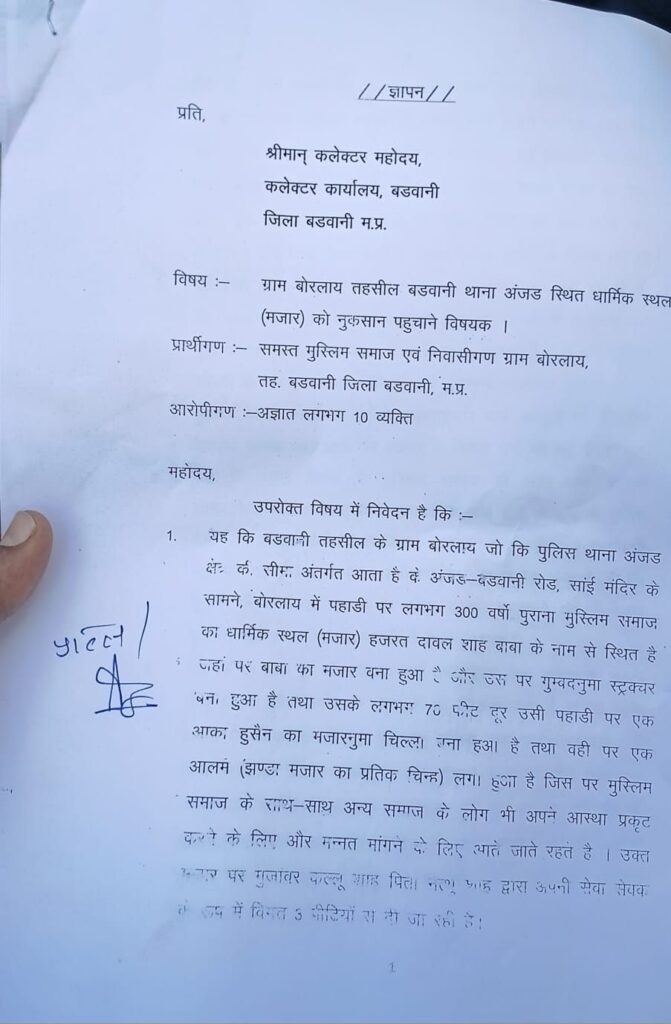 //ज्ञापन//
प्रति,
श्रीमान् कलेक्टर महोदय,
कलेक्टर कार्यालय, बडवानी
जिला बडवानी म.प्र.
विषय :– ग्राम बोरलाय तहसील बडवानी थाना अंजड स्थित धार्मिक स्थल
(मजार) को नुकसान पहुचाने विषयक ।
प्रार्थीगण :– समस्त मुस्लिम समाज एवं निवासीगण ग्राम बोरलाय,
तह. बडवानी जिला बडवानी, म.प्र.
आरोपीगण :–अज्ञात लगभग 10 व्यक्ति
महोदय,
उपरोक्त विषय में निवेदन है कि :–
1. यह कि बडवानी तहसील के ग्राम बोरलाय जो कि पुलिस थाना अंजड
सीमा अंतर्गत आता है के अंजड–बडवानी रोड, सांई मंदिर के
सामने, बोरलाय में पहाडी पर लगभग 300 वर्षो पुराना मुस्लिम समाज
का धार्मिक स्थल (मजार) हजरत दावल शाह बाबा के नाम से स्थित है
जहां पर बाबा का मजार बना हुआ है और उस पर गुम्बदनुमा स्ट्रक्चर
बना हुआ है तथा उसके लगभग 70 फीट दूर उसी पहाडी पर एक
आका हुसैन का मजारनुमा चिल्ला बना हुआ है तथा वही पर एक
आलम (झण्डा मजार का प्रतिक चिन्ह) लगा हुआ है जिस पर मुस्लिम
समाज के साथ–साथ अन्य समाज के लोग भी अपने आस्था प्रकृट
करने के लिए और मन्नत मांगने के लिए आते जाते रहते है । उक्त
पर मुजावर कल्लू शाह पिता शाह द्वारा अपनी सेवा सेवक
के रूप में विगत 3 पीढियों से दी जा रही है।
1